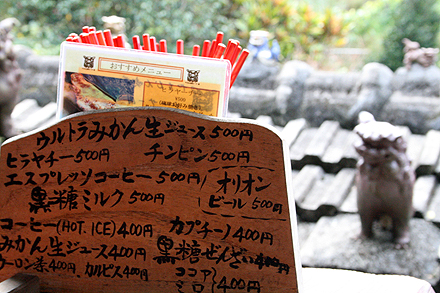 おすすめメニュー
ヒラヤーチー
¥500
ウルトラみかん生ジュース500円
ヒラヤチー500円 チンピン500円
エスプレッソコーヒー500円
黒糖ミルク 500円
オリオン
ビール 500円
コーヒー(HOT. ICE)400円 カプチーノ400円
みかん生ジュース400円 黒糖ぜんざい400円
ウーロン茶400円 カルピス400円
ココア
ミロ 400円